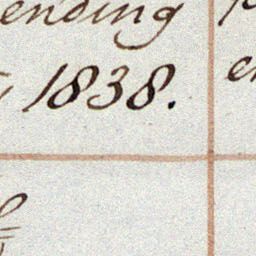 ending
1838.